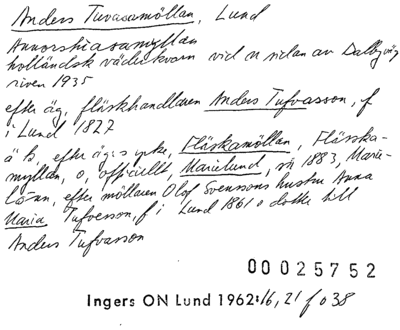 Anders Tuvasamöllan, Lund
Annorshiasamyllan
holländsk väderkvarn vid n sidan av Dalbyväg
riven 1935
efter äg, fläskhandlaren Anders Tufvasson, f
i Lund 1827
ä b, efter äg:s yrke, Fläskamöllan, Flässka-
myllan, o, officiellt, Marielund, 1883, Marie-
Lönn, efter möllaren Olof Svenssons hustru Anna
Maria Tufvesson, f i Lund 1861 o dotter till
Anders Tufvasson
00025752
Ingers ON Lund 1962:16, 21 f o 38